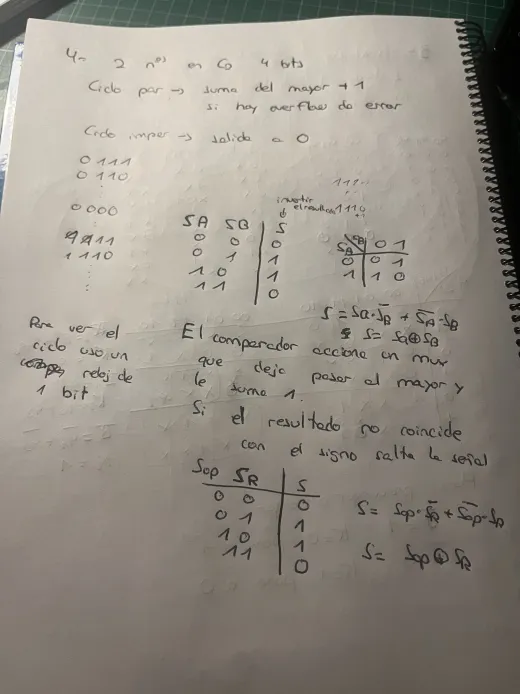 4- 2 nos en C2 4 bits
Ciclo par → suma del mayor + 1
si hay overflow da error
Ciclo impar → salida a 0
0111
0110
:
0000
1111
1110
:
111..
invertir
el resultado 1110
+1
SA SB S
0 0 0
0 1 1
1 0 1
1 1 0
SA SB 0 1
0 0 1
1 1 0
S = Sa·S̅B + S̅A·SB
S = Sa⊕SB
Para ver el
ciclo uso un
reloj de
1 bit
El comparador acciona un mux
que deja pasar al mayor y
le suma 1.
Si el resultado no coincide
con el signo salta la señal
Sop SR S
0 0 0
0 1 1
1 0 1
1 1 0
S = Sop·S̅R + S̅op·SR
S = Sop⊕SR